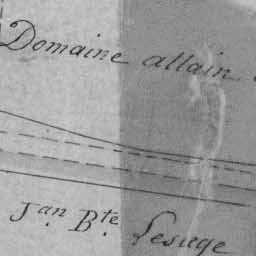 Domaine allain
J.an B.te Lesage